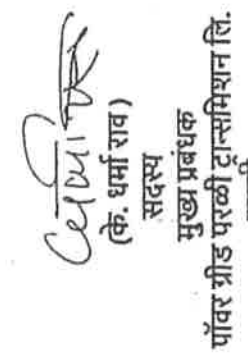 (के. धर्मा राव)
सदस्य
मुख्य प्रबंधक
पॉवर ग्रीड परळी ट्रॉन्समिशन लि.